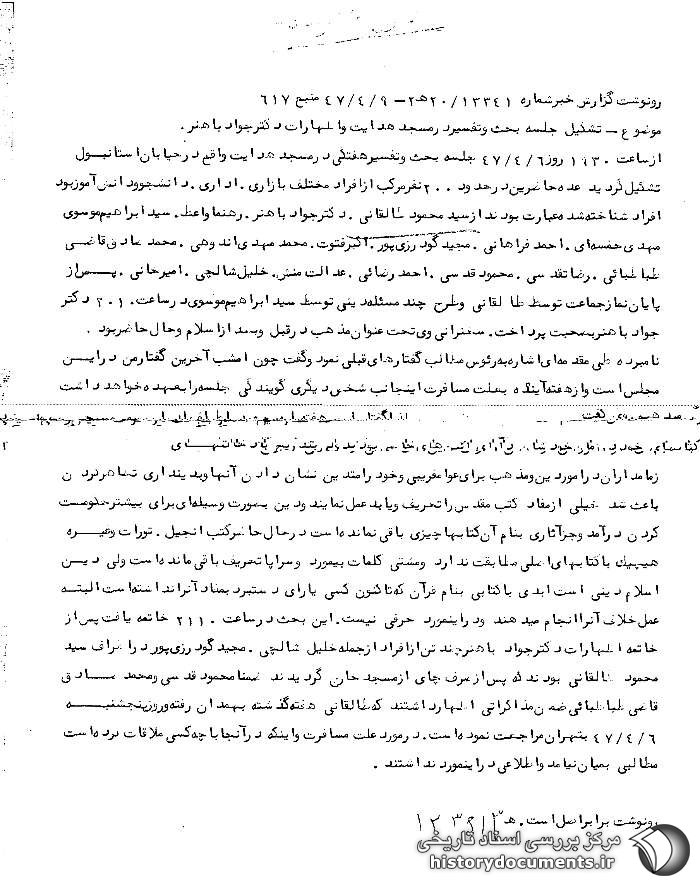 رونوشت گزارش خبر شماره ۲۰/۱۳۳۴۱ هـ ۲ – ۴۷/۴/۹ منبع ۶۱۷
موضوع – تشکیل جلسه بحث و تفسیر در مسجد هدایت و اظهارات دکتر جواد باهنر .
از ساعت ۱۹۳۰ روز ۴۷/۴/۶ جلسه بحث و تفسیر هفتگی در مسجد هدایت واقع در خیابان استانبول
تشکیل گردید عده حاضرین در حدود ۲۰۰ نفر مرکب از افراد مختلف بازاری . اداری . دانشجو و دانش آموز بود
افراد شناخته شده عبارت بودند از سید محمود طالقانی . دکتر جواد باهنر . رهنما واعظ . سید ابراهیم موسوی
مهدی خمسه‌ای . احمد فراهانی . مجید گودرزی پور . اکبر فتوت . محمد مهدی اندوهی . محمد صادق قاضی
طباطبائی . رضا تقدسی . محمود قدسی . احمد رضائی . عدالت منش . خلیل شالچی . امیرخانی . پس از
پایان نماز جماعت توسط طالقانی و طرح چند مسئله دینی توسط سید ابراهیم موسوی در ساعت ۲۰۱۰ دکتر
جواد باهنر بصحبت پرداخت . سخنرانی وی تحت عنوان مذهب در قبل و بعد از اسلام و حال حاضر بود .
نامبرده طی مقدمه‌ای اشاره به رئوس مطالب گفتارهای قبلی نمود و گفت چون امشب آخرین گفتار من در این
مجلس است و از هفته آینده بعلت مسافرت اینجانب شخص دیگری گویندگی جلسه را بعهده خواهد داشت
زمامداران در مورد دین و مذهب برای عوامفریبی و خود را متدین نشان دادن آنها و دینداری تظاهر کردن
باعث شد خیلی از مفاد کتب مقدس را تحریف و یا بد عمل نمایند و دین بصورت وسیله‌ای برای بیشتر حکومت
کردن درآمد و جز آثاری بنام آن کتابها چیزی باقی نمانده است در حال حاضر کتب انجیل . تورات و غیره
هیچیک با کتابهای اصلی مطابقت ندارد و مشتی کلمات بیمورد و سراپا تحریف باقی مانده است ولی دین
اسلام دینی است ابدی با کتابی بنام قرآن که تاکنون کسی یارای دستبرد بمفاد آنرا نداشته است البته
عمل خلاف آنرا انجام میدهند و در اینمورد حرفی نیست . این بحث در ساعت ۲۱۱۰ خاتمه یافت پس از
خاتمه اظهارات دکتر جواد باهنر چند تن از افراد از جمله خلیل شالچی . مجید گودرزی پور در اطراف سید
محمود طالقانی بودند که پس از صرف چای از مسجد خارج گردیدند ضمنا محمود قدسی و محمد صادق
قاضی طباطبائی ضمن مذاکراتی اظهار داشتند که طالقانی هفته گذشته بهمدان رفته و روز پنجشنبه
۴۷/۴/۶ بتهران مراجعت نموده است . در مورد علت مسافرت و اینکه در آنجا با چه کسی ملاقات کرده است
مطالبی بمیان نیامد و اطلاعی در اینمورد نداشتند .
رونوشت برابر اصل است . هـ
مرکز بررسی اسناد تاریخی
historydocuments.ir